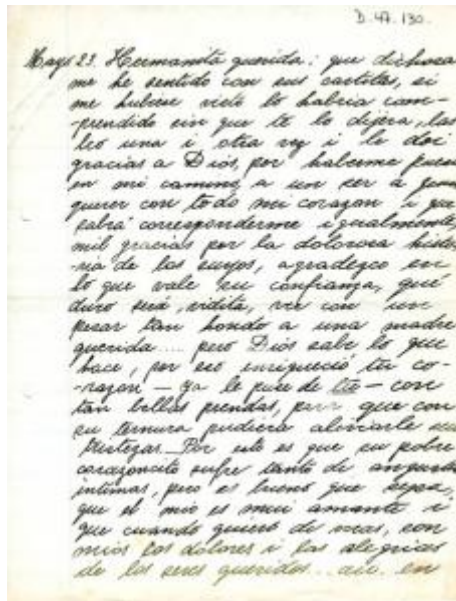 D. 47. 130.
Mayo 23. Hermanita querida: que dichosa
me he sentido con sus cartitas, si
me hubiese visto lo habria com-
-prendido sin que te lo dijera, las
leo una i otra vez i le doi
gracias a Dios, por haberme puesto
en mi camino a un ser a quien
querer con todo mi corazon i que
sabrá corresponderme igualmente,
mil gracias por la dolorosa histo-
-ria de los suyos, agradezco en
lo que vale su confianza, qué
duro será, vidita, ver con un
pesar tan hondo a una madre
querida.... pero Dios sabe lo que
hace, por eso enriqueció tu co-
-razon — ya le puse de tú — con
tan bellas prendas, para que con
su ternura pudiera aliviarle sus
tristezas. Por esto es que su pobre
corazoncito sufre tanto de angustias
íntimas, pero es bueno que sepas,
que el mio es mui amante i
que cuando quiero de veras, son
mios los dolores i las alegrias
de los seres queridos... en